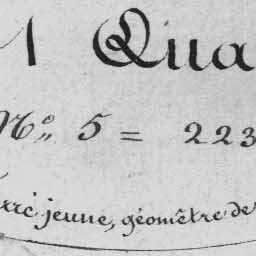 1 Qua
N° 5 = 223
jeune, géomêtre de